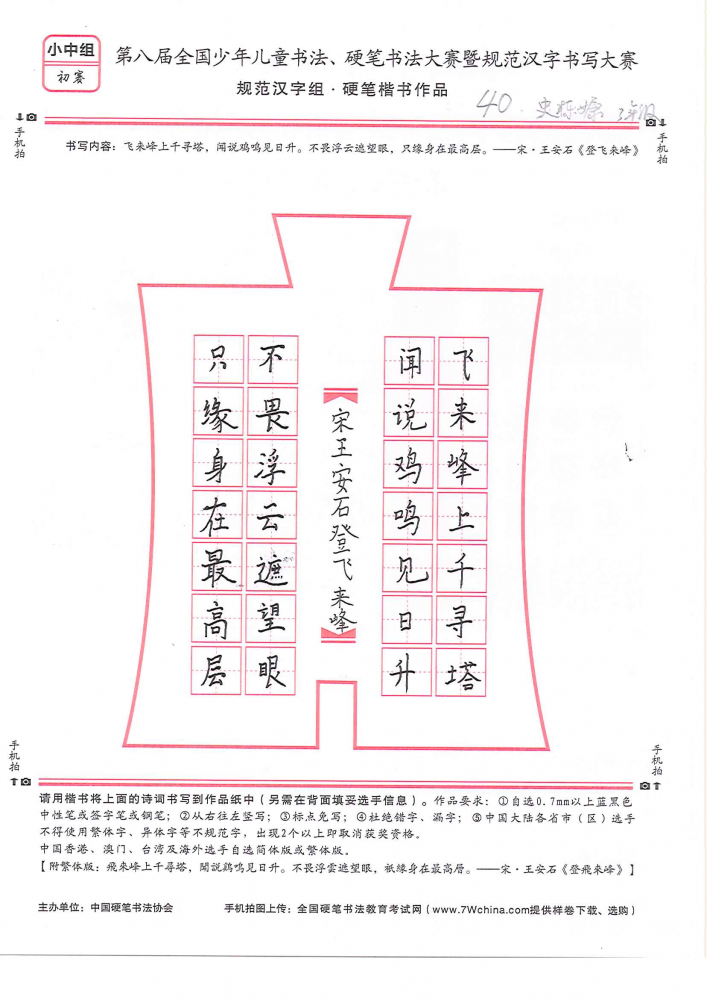 小中组
初赛
第八届全国少年儿童书法、硬笔书法大赛暨规范汉字书写大赛
规范汉字组·硬笔楷书作品
40.
3年级
手机拍
手机拍
书写内容：飞来峰上千寻塔，闻说鸡鸣见日升。不畏浮云遮望眼，只缘身在最高层。——宋·王安石《登飞来峰》
飞来峰上千寻塔
闻说鸡鸣见日升
宋王安石登飞来峰
不畏浮云遮望眼
只缘身在最高层
手机拍
手机拍
请用楷书将上面的诗词书写到作品纸中（另需在背面填妥选手信息）。作品要求：①自选0.7mm以上蓝黑色
中性笔或签字笔或钢笔；②从右往左竖写；③标点免写；④杜绝错字、漏字；⑤中国大陆各省市（区）选手
不得使用繁体字、异体字等不规范字，出现2个以上即取消获奖资格。
中国香港、澳门、台湾及海外选手自选简体版或繁体版。
【附繁体版：飛來峰上千尋塔，聞說鷄鳴見日升。不畏浮雲遮望眼，衹緣身在最高層。——宋·王安石《登飛來峰》】
主办单位：中国硬笔书法协会
手机拍图上传：全国硬笔书法教育考试网（www.7Wchina.com提供样卷下载、选购）